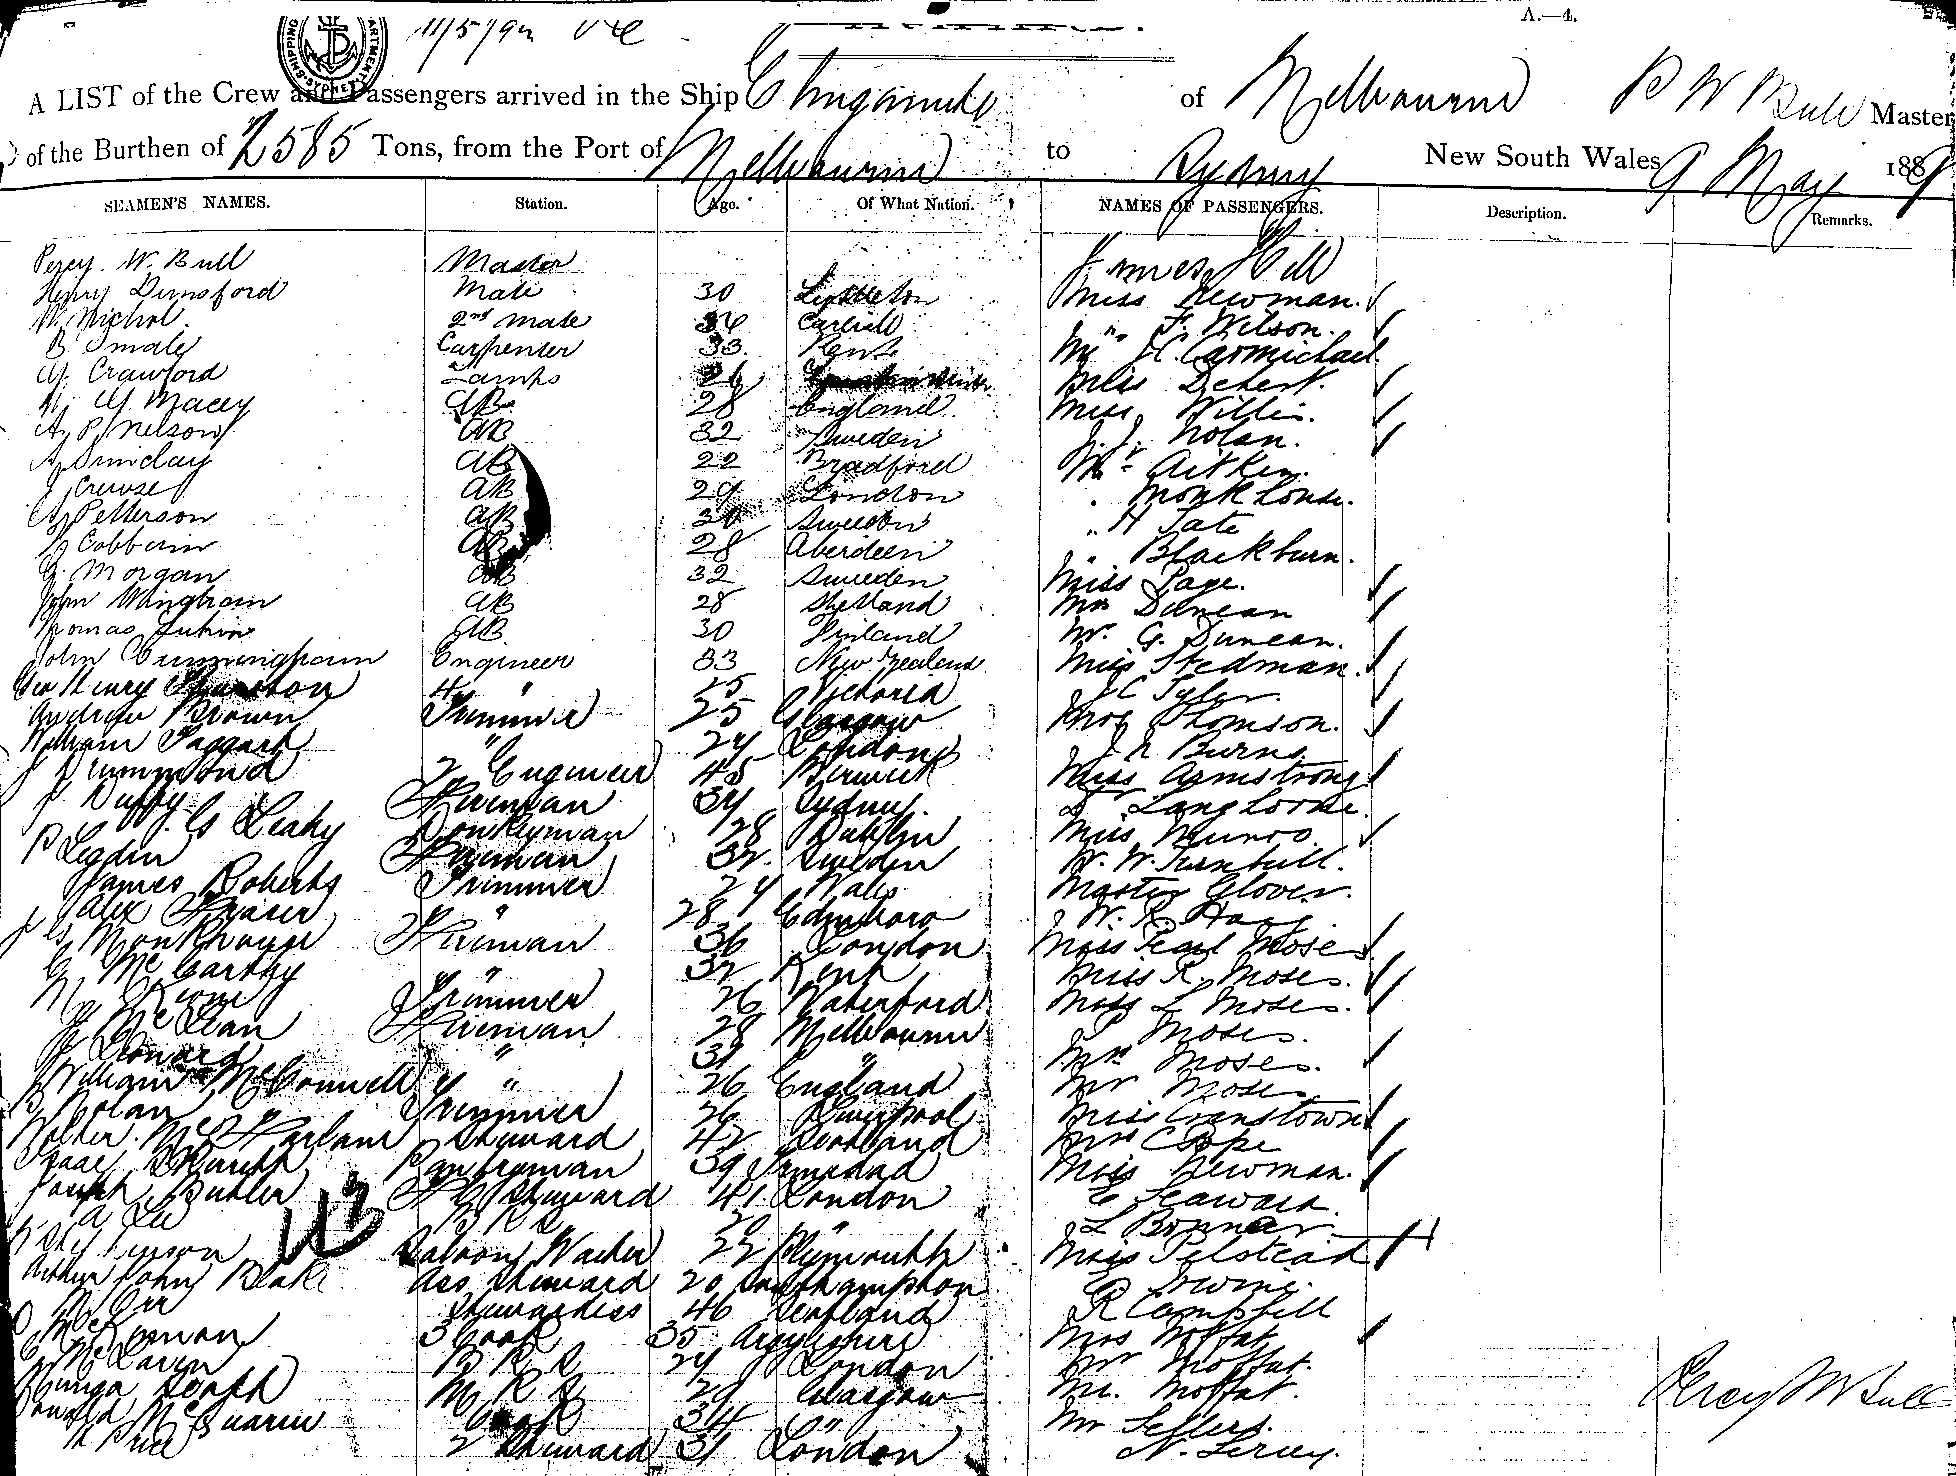 A.—4.
SHIPPING DEPARTMENT SYDNEY
11/5/9
A LIST of the Crew and Passengers arrived in the Ship of Melbourne P W Bull Master
of the Burthen of 2585 Tons, from the Port of Melbourne to Sydney New South Wales 9 May 188
SEAMEN'S NAMES. Station. Age. Of What Nation. NAMES OF PASSENGERS. Description. Remarks.
Percy. W. Bull Master James Hill
Henry Dunsford Mate 30 Lyttleton Miss Newman.
W. Nichol 2nd Mate 36 Carlisle " F. Wilson.
B Smale Carpenter 33 Kent Mr J C. Carmichael
G. Crawford Lamps 26 Miss Debert.
Macey AB 28 England Miss Willis.
A. P. Nelson AB 32 Sweden J. J. Nolan.
A. Sunday AB 22 Bradford Mr Aitken.
J Creuse AB 29 London Monkhouse.
A. Petterson AB 30 Sweden " H Tate
J Cobban AB 28 Aberdeen " Blackburn.
J. Morgan AB 32 Sweden Miss Page.
John Wingham AB 28 Shetland Mrs Duncan
Thomas AB 30 Finland Mr. G. Duncan.
John Cunningham Engineer 33 New Zealand Miss Stedman.
Geo Henry 4 " 25 Victoria J C Tyler.
Andrew Brown Trimmer 25 Glasgow Thomson.
William Taggart " 24 London J N Burns
J Drummond 2 Engineer 45 Berwick Miss Armstrong
J Duffy Fireman 34 Sydney. Langhorne.
G Leahy Donkeyman 28 Dublin Miss Munro.
P Legdin Fireman 32 Sweden W. W. Turnbull.
James Roberts Trimmer 24 Wales Master Glover.
Alex Fraser " 28 Edinboro W. R.
Fireman 36 London Miss Pearl Moses
G McCarthy " 32 Kent Miss R. Moses.
Trimmer 26 Waterford Miss L Moses.
McLean Fireman 28 Melbourne Moses.
Leonard " 31 " Mrs Moses.
William McConnell " 26 England Mr Moses
P Nolan Trimmer 26 Liverpool Miss Cranstown
Walter McFarlane Steward 42 Scotland Mrs C Pope
Isaac Pantryman 39 Trinidad Miss Newman.
Joseph Butler F C Steward 41 London E Seaward.
A Lee B R S 20 " L Bonnar
Saloon Waiter 22 Plymouth Miss Pelstead
Arthur John Blake Ass Steward 20 Southampton E Irvine.
McOrr Stewardess 46 Scotland R Campbell
3 Cook 35 Argyleshire Mrs Moffat
McLaren B R S 24 London Mr Moffat.
M R S 29 Glasgow Mr. Moffat.
Donald McQuarrie Cook 34 " Mr Sellers.
Price 2 Steward 31 London
Percy W Bull